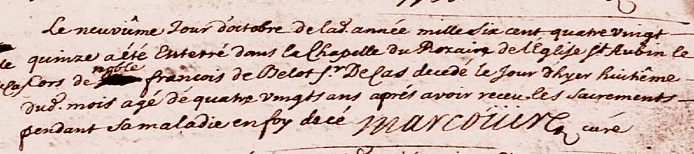 Le neuvûme Jour d'octobre de lad. année mille Six cent quatre vingt
quinze a été Enterré dans la Chapelle du Rozaire de l'Eglise St Aubin le
Cors de noble francois de Belot sr. De Cas decedé le Jour d'hyer huitième
dud. mois agé de quatre vingts ans aprés avoir receu les sacrements
pendant Sa maladie en foy de cé Marcouire curé